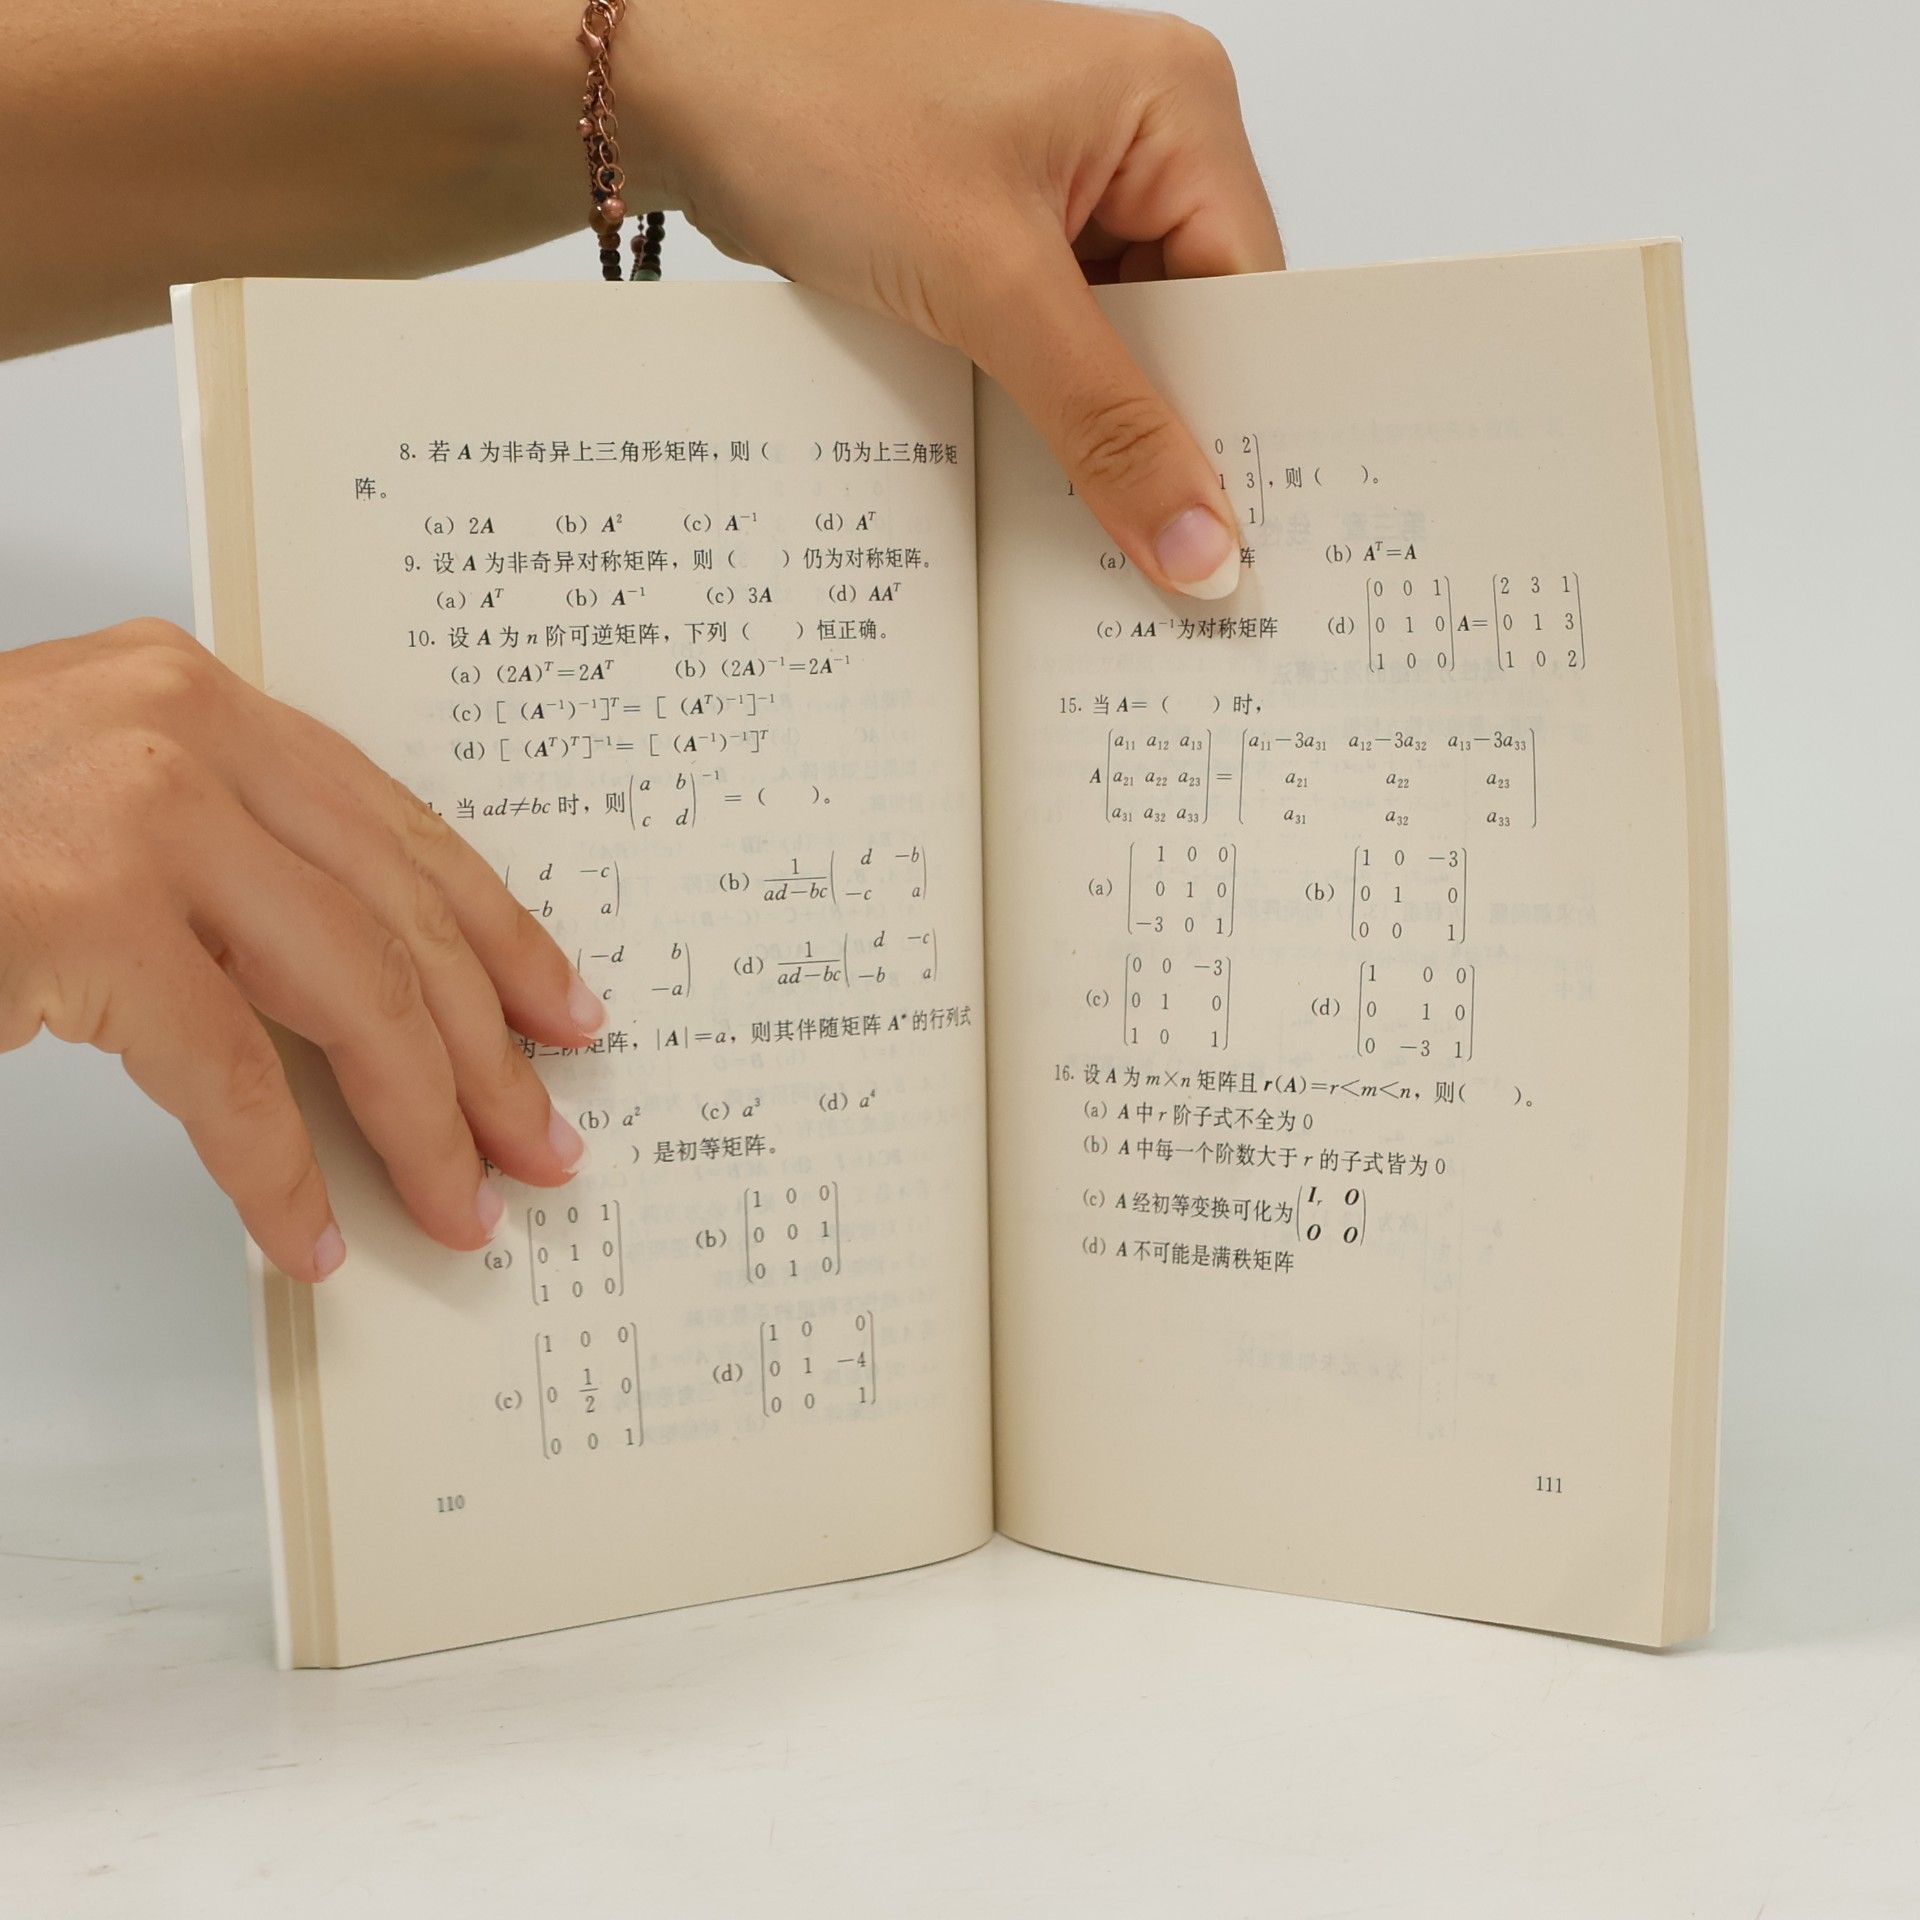 8. 若 A 为非奇异上三角形矩阵，则（ ）仍为上三角形矩
阵。
(a) 2A (b) A² (c) A⁻¹ (d) Aᵀ
9. 设 A 为非奇异对称矩阵，则（ ）仍为对称矩阵。
(a) Aᵀ (b) A⁻¹ (c) 3A (d) AAᵀ
10. 设 A 为 n 阶可逆矩阵，下列（ ）恒正确。
(a) (2A)ᵀ=2Aᵀ (b) (2A)⁻¹=2A⁻¹
(c) [ (A⁻¹)⁻¹]ᵀ= [ (Aᵀ)⁻¹]⁻¹
(d) [ (Aᵀ)ᵀ]⁻¹= [ (A⁻¹)⁻¹]ᵀ
当 ad≠bc 时，则
a b
c d
⁻¹ = （ ）。
d −c
−b a
(b) 1/(ad−bc)
d −b
−c a
−d b
c −a
(d) 1/(ad−bc)
d −c
−b a
为三阶矩阵，|A|=a，则其伴随矩阵 A* 的行列式
(b) a² (c) a³ (d) a⁴
）是初等矩阵。
(a)
0 0 1
0 1 0
1 0 0
(b)
1 0 0
0 0 1
0 1 0
(c)
1 0 0
0 1/2 0
0 0 1
(d)
1 0 0
0 1 −4
0 0 1
110
0 2
1 3
1
，则（ ）。
(a) 阵 (b) Aᵀ=A
(c) AA⁻¹为对称矩阵 (d)
0 0 1
0 1 0
1 0 0
A=
2 3 1
0 1 3
1 0 2
15. 当 A=（ ）时，
A
a₁₁ a₁₂ a₁₃
a₂₁ a₂₂ a₂₃
a₃₁ a₃₂ a₃₃
=
a₁₁−3a₃₁ a₁₂−3a₃₂ a₁₃−3a₃₃
a₂₁ a₂₂ a₂₃
a₃₁ a₃₂ a₃₃
(a)
1 0 0
0 1 0
−3 0 1
(b)
1 0 −3
0 1 0
0 0 1
(c)
0 0 −3
0 1 0
1 0 1
(d)
1 0 0
0 1 0
0 −3 1
16. 设 A 为 m×n 矩阵且 r(A)=r<m<n，则( )。
(a) A 中 r 阶子式不全为 0
(b) A 中每一个阶数大于 r 的子式皆为 0
(c) A 经初等变换可化为
Iᵣ O
O O
(d) A 不可能是满秩矩阵
111